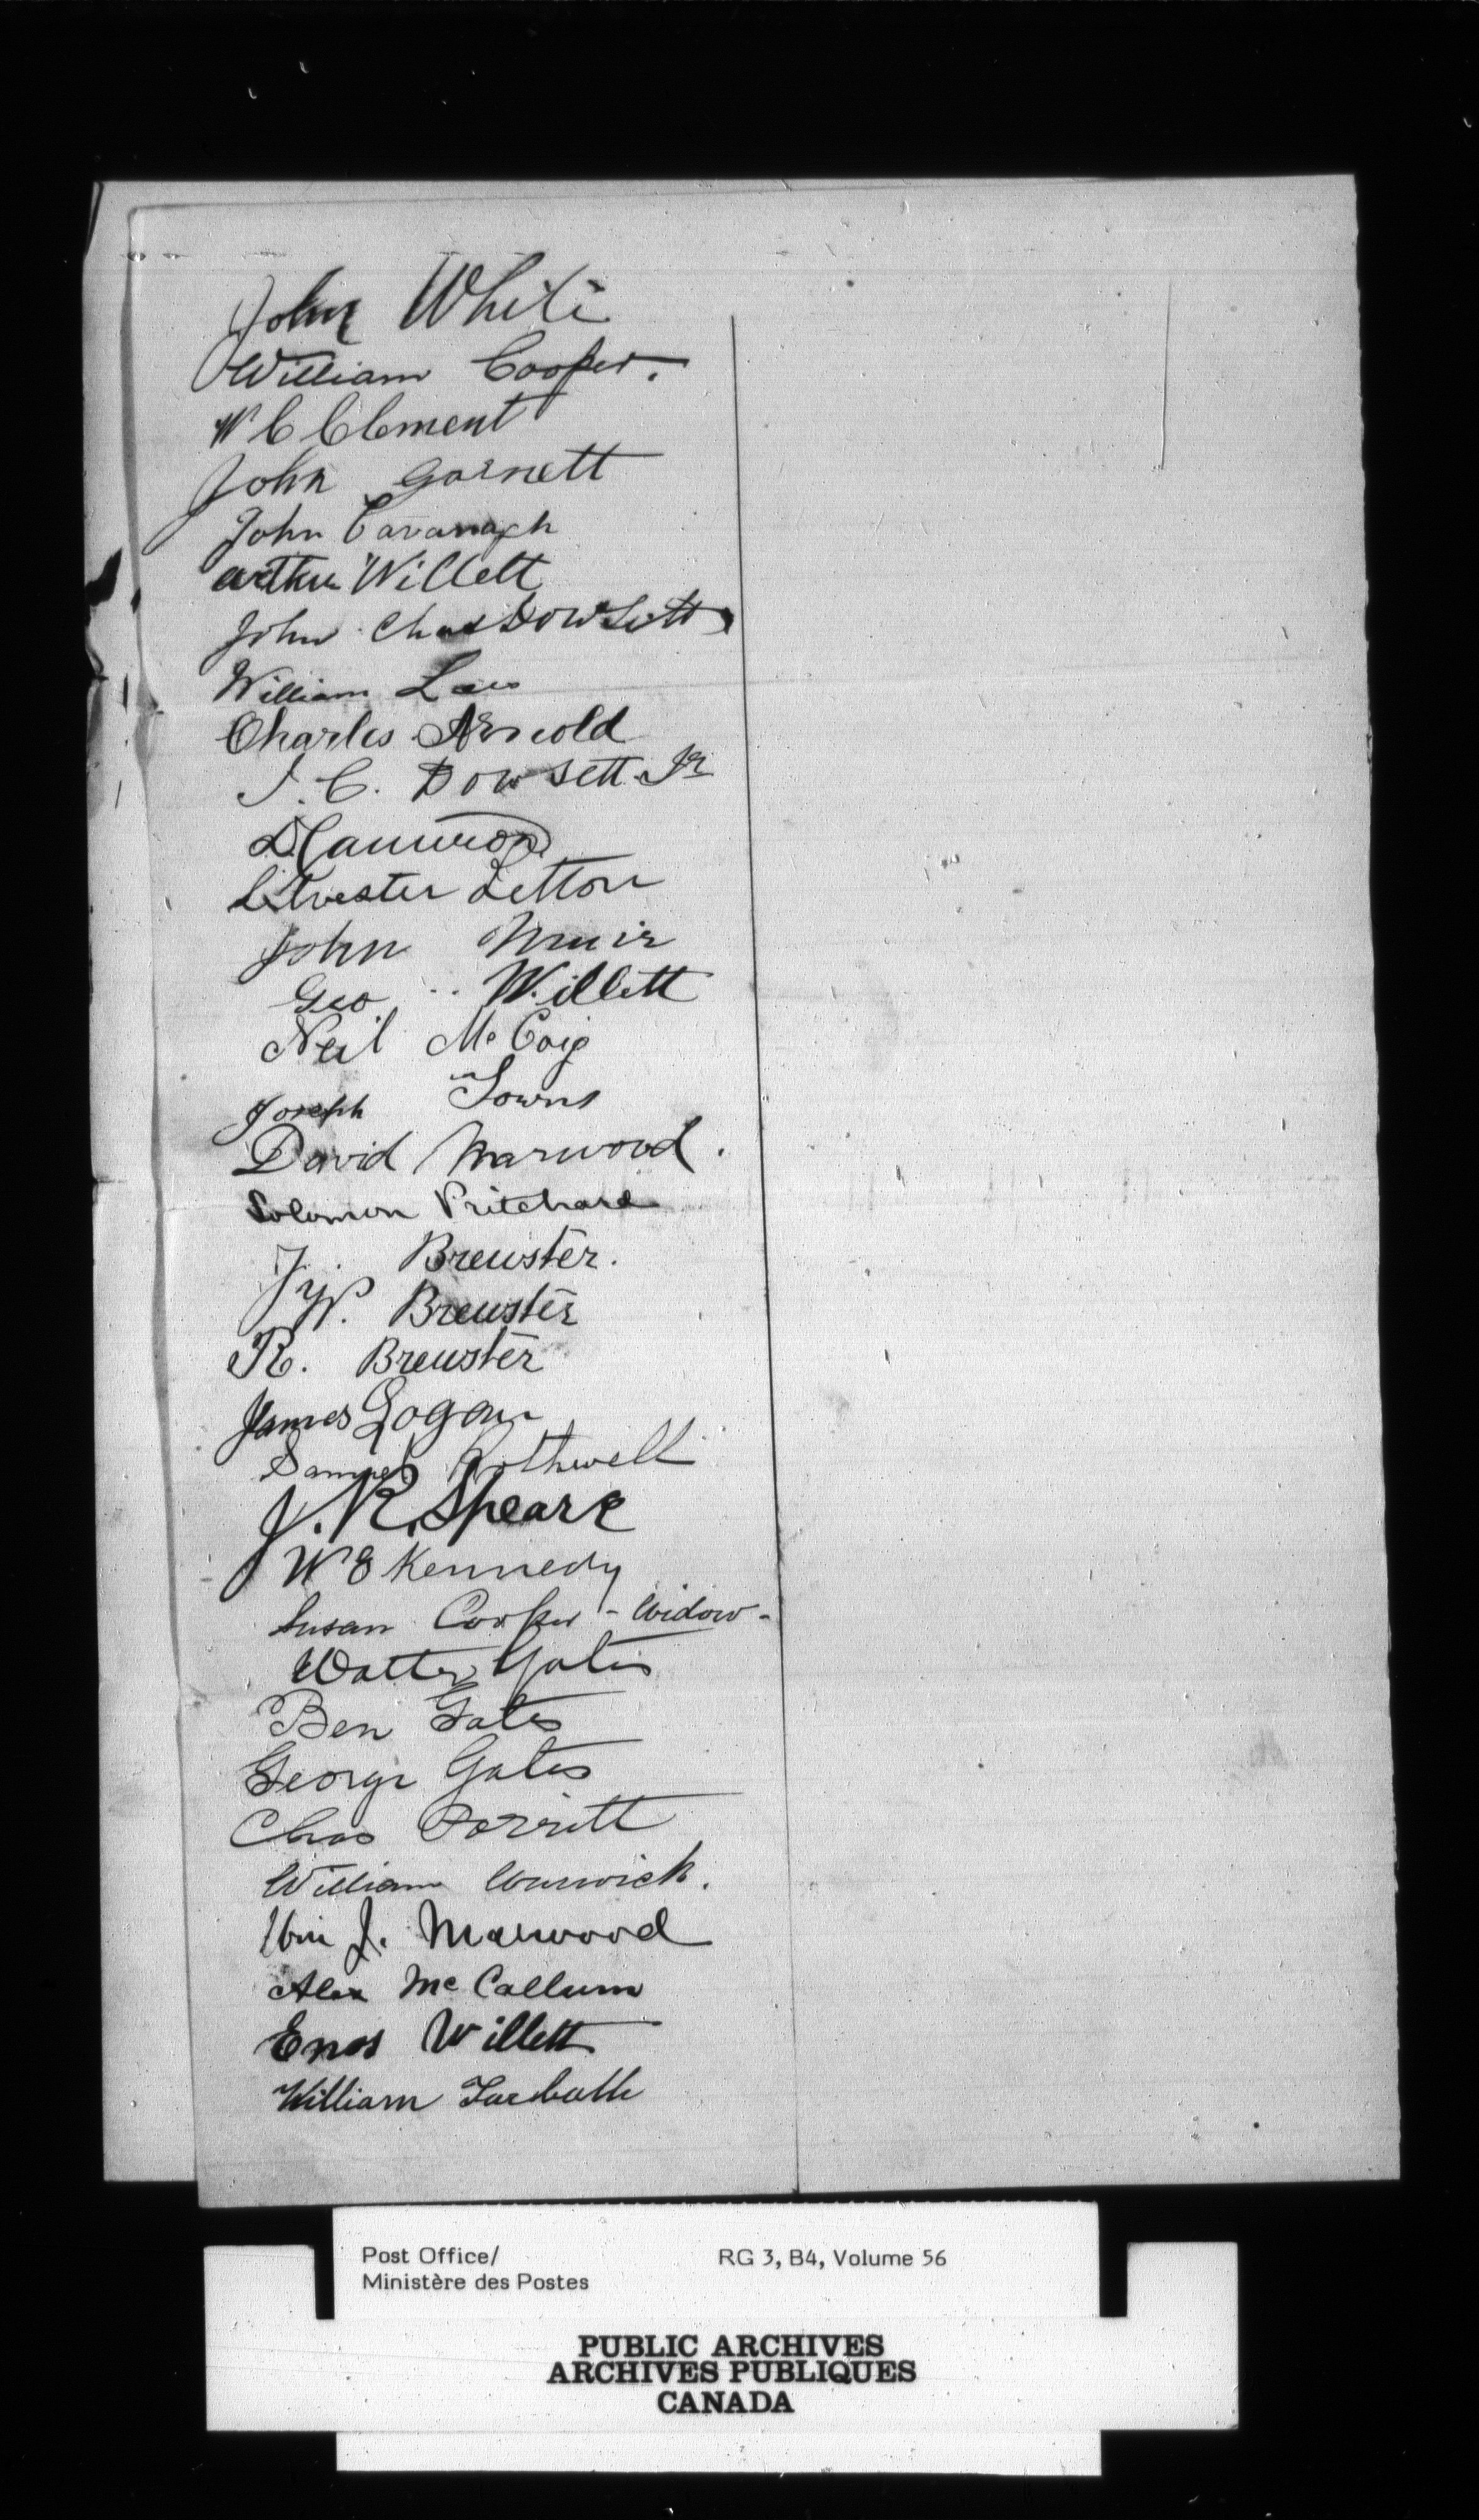 John White
William Cooper.
W C Clement
John Garnett
John Cavanagh
Arthur Willett
John Chas Dowsett
William Law
Charles Arnold
J. C. Dowsett Jr
D. Cameron
Silvester Letton
John Muir
Geo. Willett
Neil McCoig
Joseph Towns
David Marwood.
Solomon Pritchard
J. Brewster.
W. Brewster
R. Brewster
James Logan
Samuel Rothwell
J. R. Speare
W E Kennedy
Susan Cooper - Widow -
Walter Gates
Ben Gates
George Gates
Chas Porritt
William Warwick.
Wm J. Marwood
Alex McCallum
Enos Willett
William
Post Office/
Ministère des Postes
RG 3, B4, Volume 56
PUBLIC ARCHIVES
ARCHIVES PUBLIQUES
CANADA